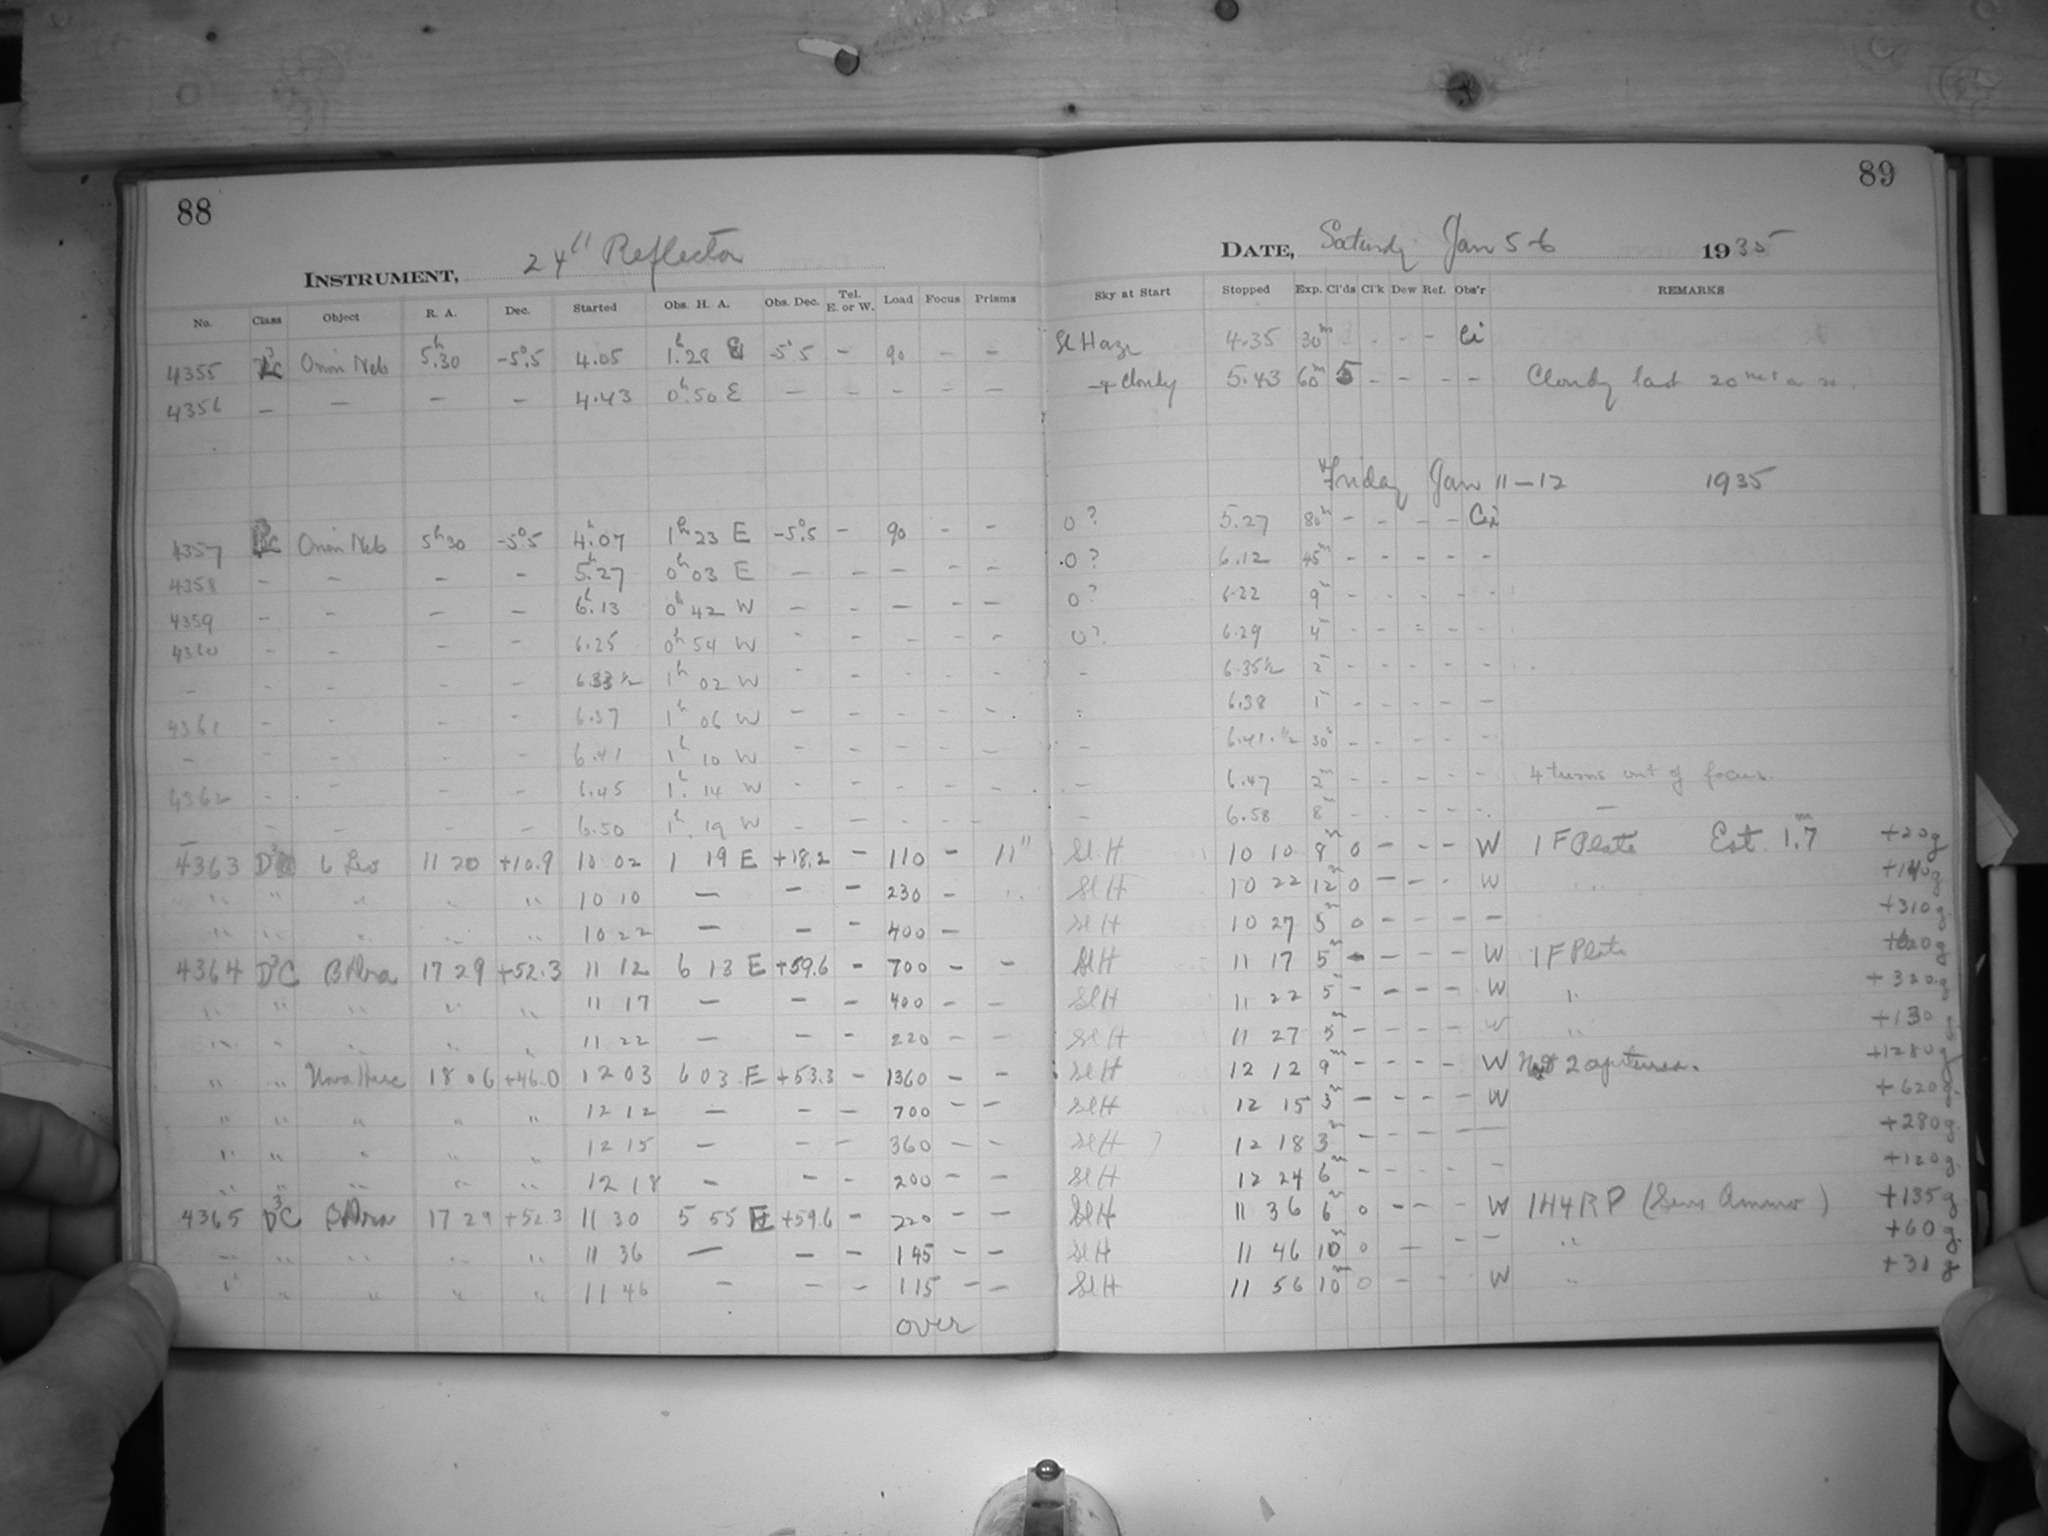 88
INSTRUMENT, 24" Reflector
No. Class Object R. A. Dec. Started Obs. H. A. Obs. Dec. Tel. E. or W. Load Focus Prisms
4355 Orion Neb 5h.30 -5°.5 4.05 1h.28 -5°.5 - 90 - -
4356 - - - - 4.43 0h.50 E - - - - -
4357 Orion Neb 5h30 -5°.5 4h.07 1h 23 E -5°.5 - 90 - -
4358 - - - - 5h.27 0h 03 E - - - - -
4359 - - - - 6h.13 0h 42 W - - - - -
4360 - - - - 6.25 0h 54 W - - - - -
- - - - - 6.33 1/2 1h 02 W - - - - -
4361 - - - - 6.37 1h 06 W - - - - -
- - - - - 6.41 1h 10 W - - - - -
4362 - - - - 6.45 1h. 14 W - - - - -
- - - - - 6.50 1h. 19 W - - - - -
4363 6 Leo 11 20 +10.9 10 02 1 19 E +18.2 - 110 - 11"
" " " " " 10 10 - - - 230 -
" " " " " 10 22 - - - 400 -
4364 D3C B Dra 17 29 +52.3 11 12 6 13 E +59.6 - 700 - -
" " " " " 11 17 - - - 400 - -
" " " " " 11 22 - - - 220 - -
" " Nova Herc 18 06 +46.0 12 03 6 03 E +53.3 - 1360 - -
" " " " " 12 12 - - - 700 - -
" " " " " 12 15 - - - 360 - -
" " " " " 12 18 - - - 200 - -
4365 D3C B Dra 17 29 +52.3 11 30 5 55 E +59.6 - 220 - -
" " " " " 11 36 - - - 145 - -
" " " " " 11 46 - - - 115 - -
over
89
DATE, Saturday Jan 5-6 1935
Sky at Start Stopped Exp. Cl'ds Cl'k Dew Ref. Obs'r REMARKS
Sl Haze 4.35 30m - - - Ci
→ Cloudy 5.43 60m 5 - - - - Cloudy last 20
Friday Jan 11-12 1935
0? 5.27 80m - - - - Ci
0? 6.12 45m - - - - -
0? 6.22 9m - - - - -
0? 6.29 4m - - - - -
- 6.35 1/2 2m - - - - -
6.38 1m - - - - -
- 6.41.1/2 30s - - - - -
- 6.47 2m - - - - - 4 turns out of focus.
- 6.58 8m - - - - - -
Sl H 10 10 8m 0 - - - W 1 F Plate Est. 1m.7 +20g
Sl H 10 22 12m 0 - - - W " +140g
Sl H 10 27 5m 0 - - - - +310g
Sl H 11 17 5m - - - - W 1 F Plate +620g
Sl H 11 22 5m - - - - W " +320g
Sl H 11 27 5m - - - - W " +130g
Sl H 12 12 9m - - - - W 2 apertures. +1280g
Sl H 12 15 3m - - - - W +620g.
Sl H 12 18 3m - - - - - +280g.
Sl H 12 24 6m - - - - - +120g.
Sl H 11 36 6m 0 - - - W 1H4RP ( ) +135g
Sl H 11 46 10m 0 - - - " +60g.
Sl H 11 56 10m 0 - - W " +31g